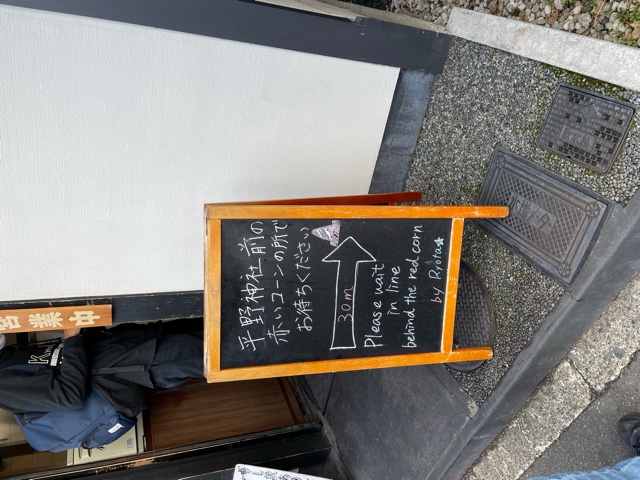 平野神社前の
赤いコーンの所で
お待ちください
30m
Please wait
in line
behind the red corn
by Ryota☆
営業中